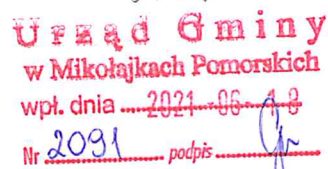 Urząd Gminy
w Mikołajkach Pomorskich
wpł. dnia 2021 -06- 18
Nr 2091 podpis